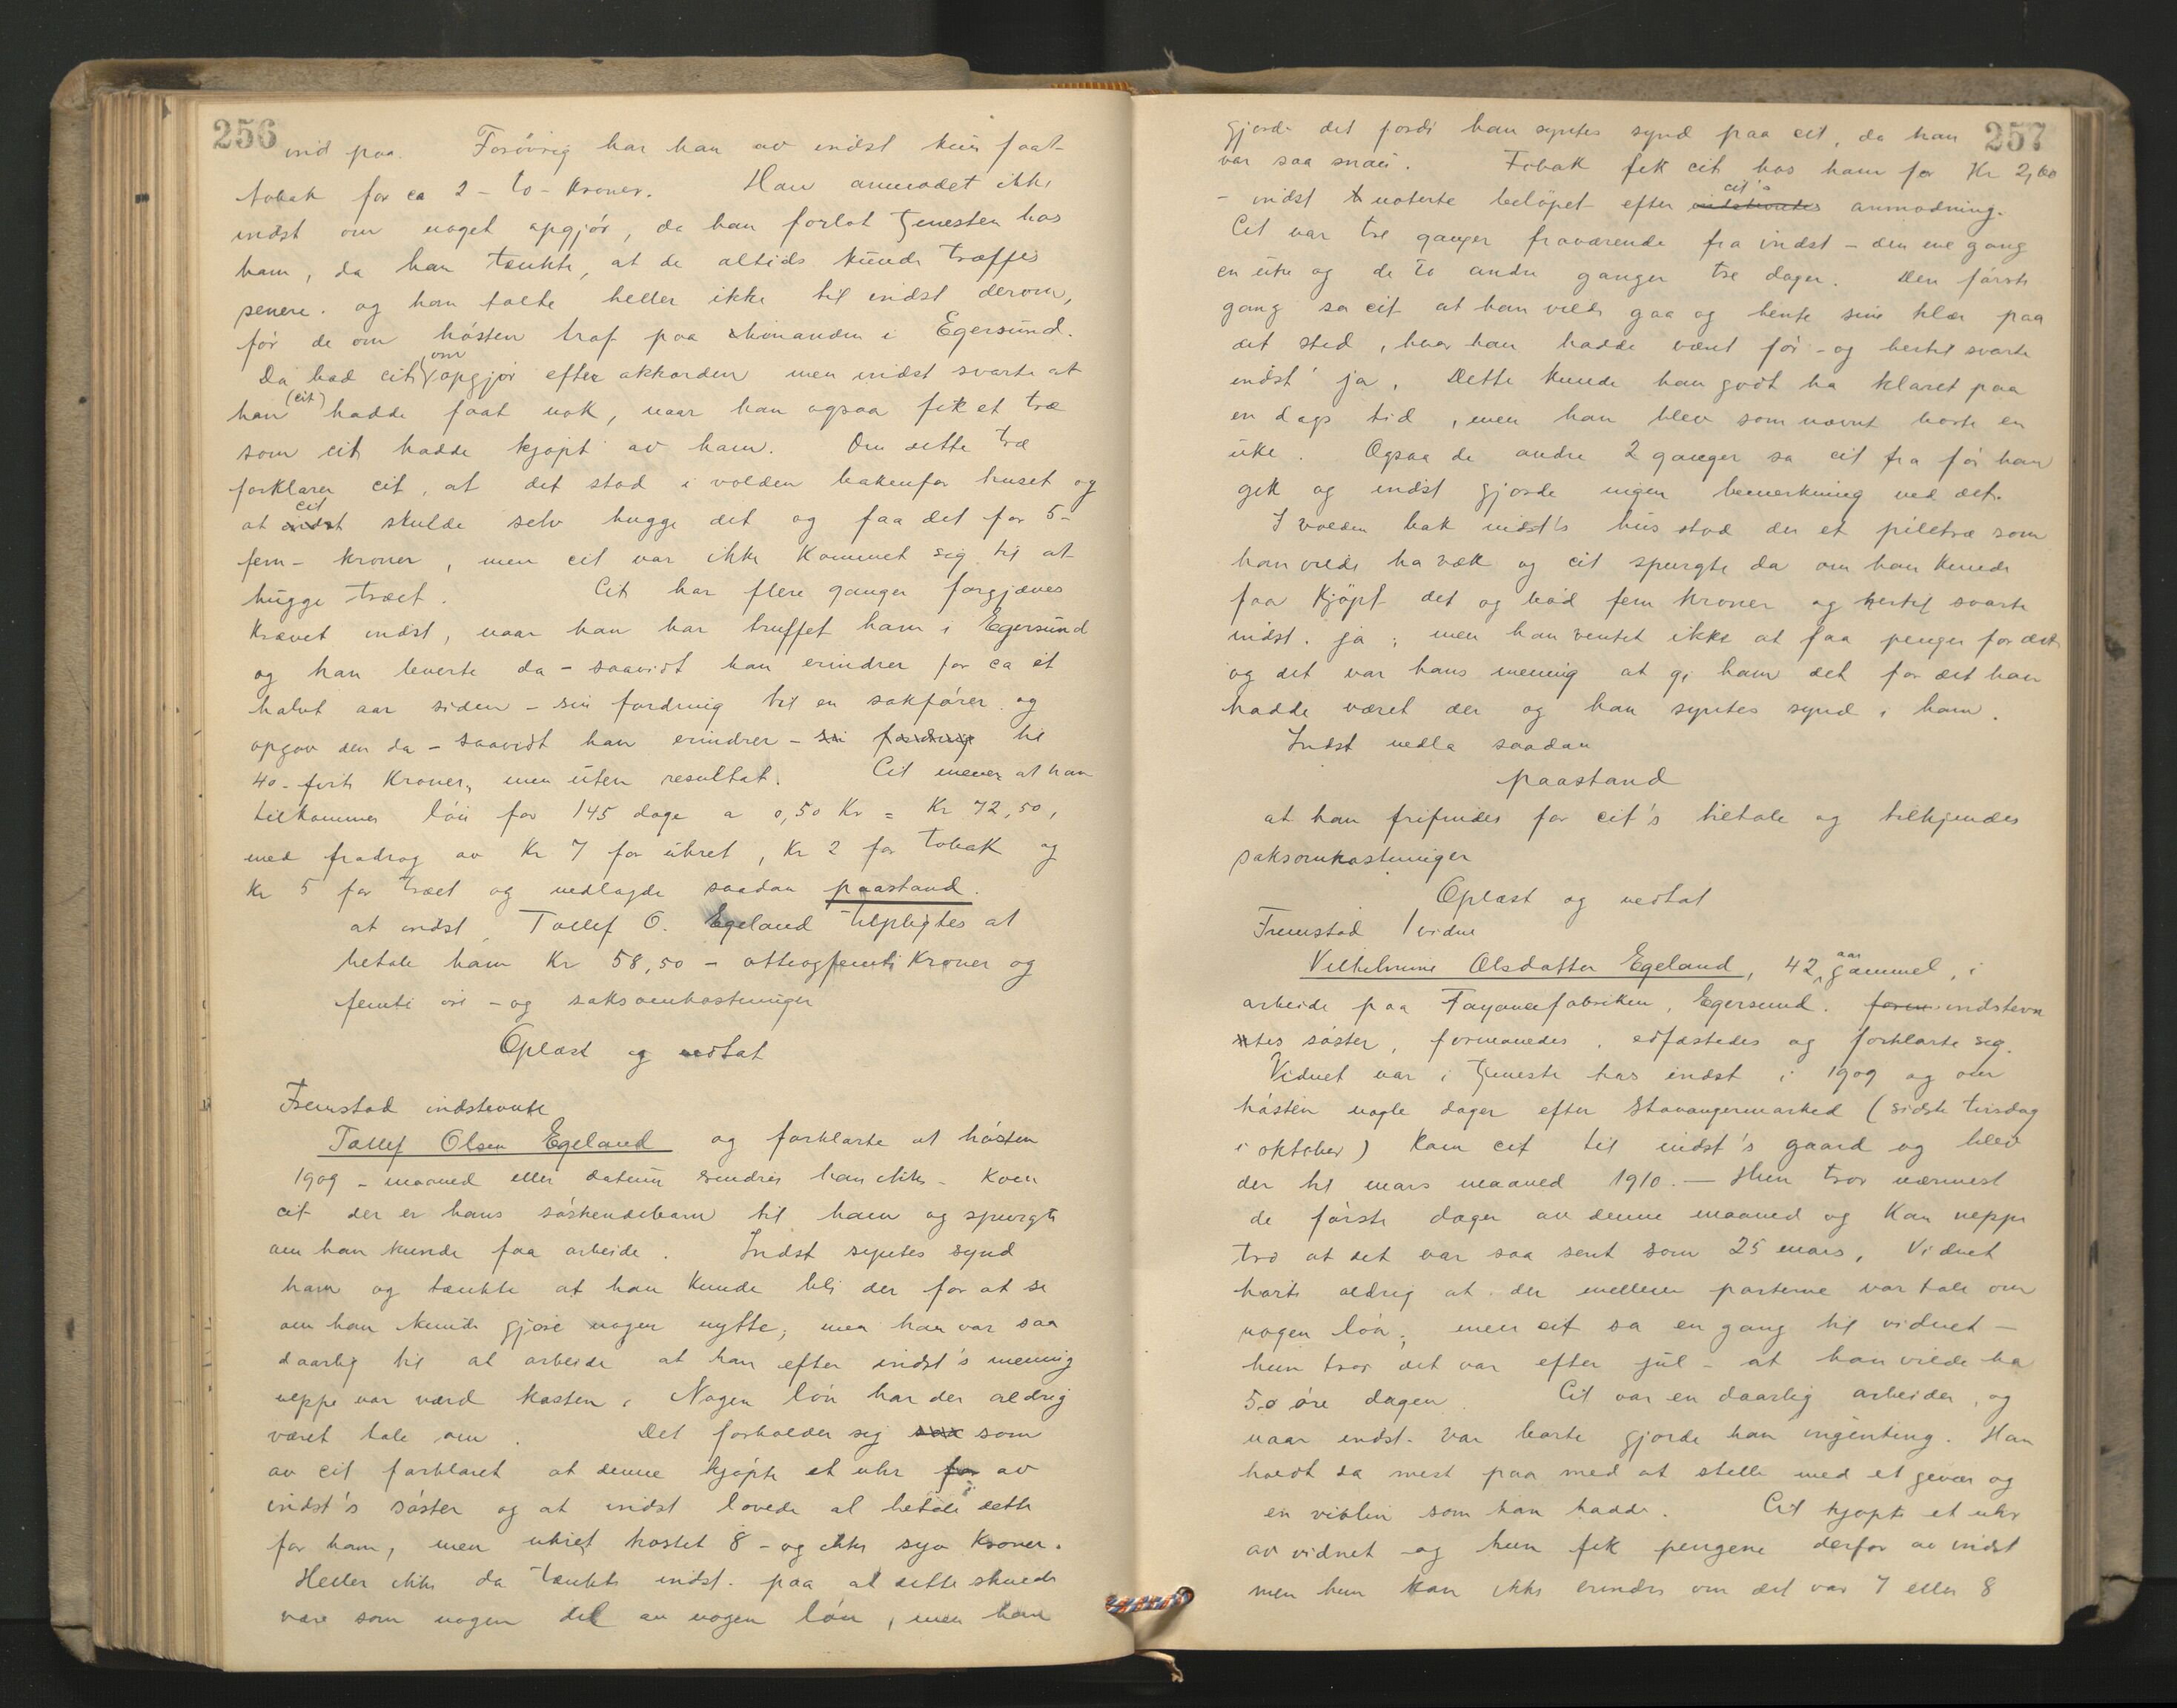 256
ind paa. Forøvrig har han av indst kun faat
tobak for ca 2 - to - kroner. Han anmodet ikke
indst om noget opgjør, da han forlot tjenesten hos
ham, da han tænkte, at de altids kunde træffes
senere. og han talte heller ikke til indst derom,
før de om høsten traf paa hinanden i Egersund.
Da bad cit om opgjør efter akkorden men indst svarte at
han (cit) hadde faat nok, naar han ogsaa fik et træ
som cit hadde kjøpt av ham. Om dette træ
forklarer cit, at det stod i volden bakenfor huset og
at indst cit skulde selv hugge det og faa det for 5-
fem - kroner, men cit var ikke kommet sig til at
hugge træet. Cit har flere ganger forgjæves
krævet indst, naar han har truffet ham i Egersund
og han leverte da - saavidt han erindrer for ca et
halvt aar siden - sin fordring til en sakfører og
opgav den da - saavidt han erindrer - sin fordring til
40 - førti kroner, men uten resultat. Cit mener at han
tilkommer løn for 145 dage a 0,50 Kr = Kr 72,50,
med fradrag av Kr 7 for uhret, Kr 2 for tobak og
Kr 5 for træet og nedlagde saadan paastand.
at indst Tollef O. Egeland tilpligtes at
betale ham Kr 58,50 - otteogfemti Kroner og
femti øre - og saksomkostninger
Oplæst og vedtat
Fremstod indstevnte
Tollef Olsen Egeland og forklarte at høsten
1909 - maaned eller datum erindres han ikke - kom
cit der er hans søskendebarn til ham og spurgte
om han kunde faa arbeide. Indst syntes synd
ham og tænkte at han kunde bli der for at se
om han kunde gjøre nogen nytte, men han var saa
daarlig til at arbeide at han efter indst's mening
neppe var værd kosten. Nogen løn har der aldrig
været tale om. Det forholder sig saa som
av cit forklaret at denne kjøpte et uhr for av
indst's søster og at indst lovede at betale dette
for ham, men uhret kostet 8 - og ikke syv Kroner.
Heller ikke da tænkte indst. paa at dette skulde
være som nogen del av nogen løn, men han
257
gjorde det fordi han syntes synd paa cit, da han
var saa snau. Tobak fik cit hos ham for Kr 2,60
- indst noterte beløpet efter indstevntes cit's anmodning.
Cit var tre ganger fraværende fra indst - den ene gang
en uke og de to andre ganger tre dager. Den første
gang sa cit at han vilde gaa og hente sine klær paa
det sted, hvor han hadde været før - og hertil svarte
indst ja. Dette kunde han godt ha klaret paa
en dags tid, men han blev som nævnt borte en
uke. Ogsaa de andre 2 ganger sa cit fra før han
gik og indst gjorde ingen bemerkning ved det.
I volden bak indst's hus stod der et piletræ som
han vilde ha væk og cit spurgte da om han kunde
faa kjøpt det og bød fem kroner og hertil svarte
indst. ja; men han ventet ikke at faa penger for det
og det var hans mening at gi ham det for det han
hadde været der og han syntes synd i ham.
Indst nedla saadan
paastand
at han frifindes for cit's tiltale og tilkjendes
saksomkostninger
Oplæst og vedtat
Fremstod 1 vidne
Vilhelmine Olsdatter Egeland, 42 aar gammel, i
arbeide paa Fayancefabriken, Egersund. indstevn
tes søster, formanedes, edfæstedes og forklarte sig.
Vidnet var i tjeneste hos indst i 1909 og om
høsten nogle dager efter Stavangermarked (sidste tirsdag
i oktober) kom cit til indst's gaard og blev
der til mars maaned 1910. — Hun tror nærmest
de første dager av denne maaned og kan neppe
tro at det var saa sent som 25 mars. Vidnet
hørte aldrig at der mellem parterne var tale om
nogen løn; men cit sa en gang til vidnet -
hun tror det var efter jul - at han vilde ha
50 øre dagen. Cit var en daarlig arbeider, og
naar indst. var borte gjorde han ingenting. Han
holdt da mest paa med at stelle med et gevær og
en violin som han hadde. Cit kjøpte et uhr
av vidnet - og hun fik pengene derfor av indst
men hun kan ikke erindre om det var 7 eller 8